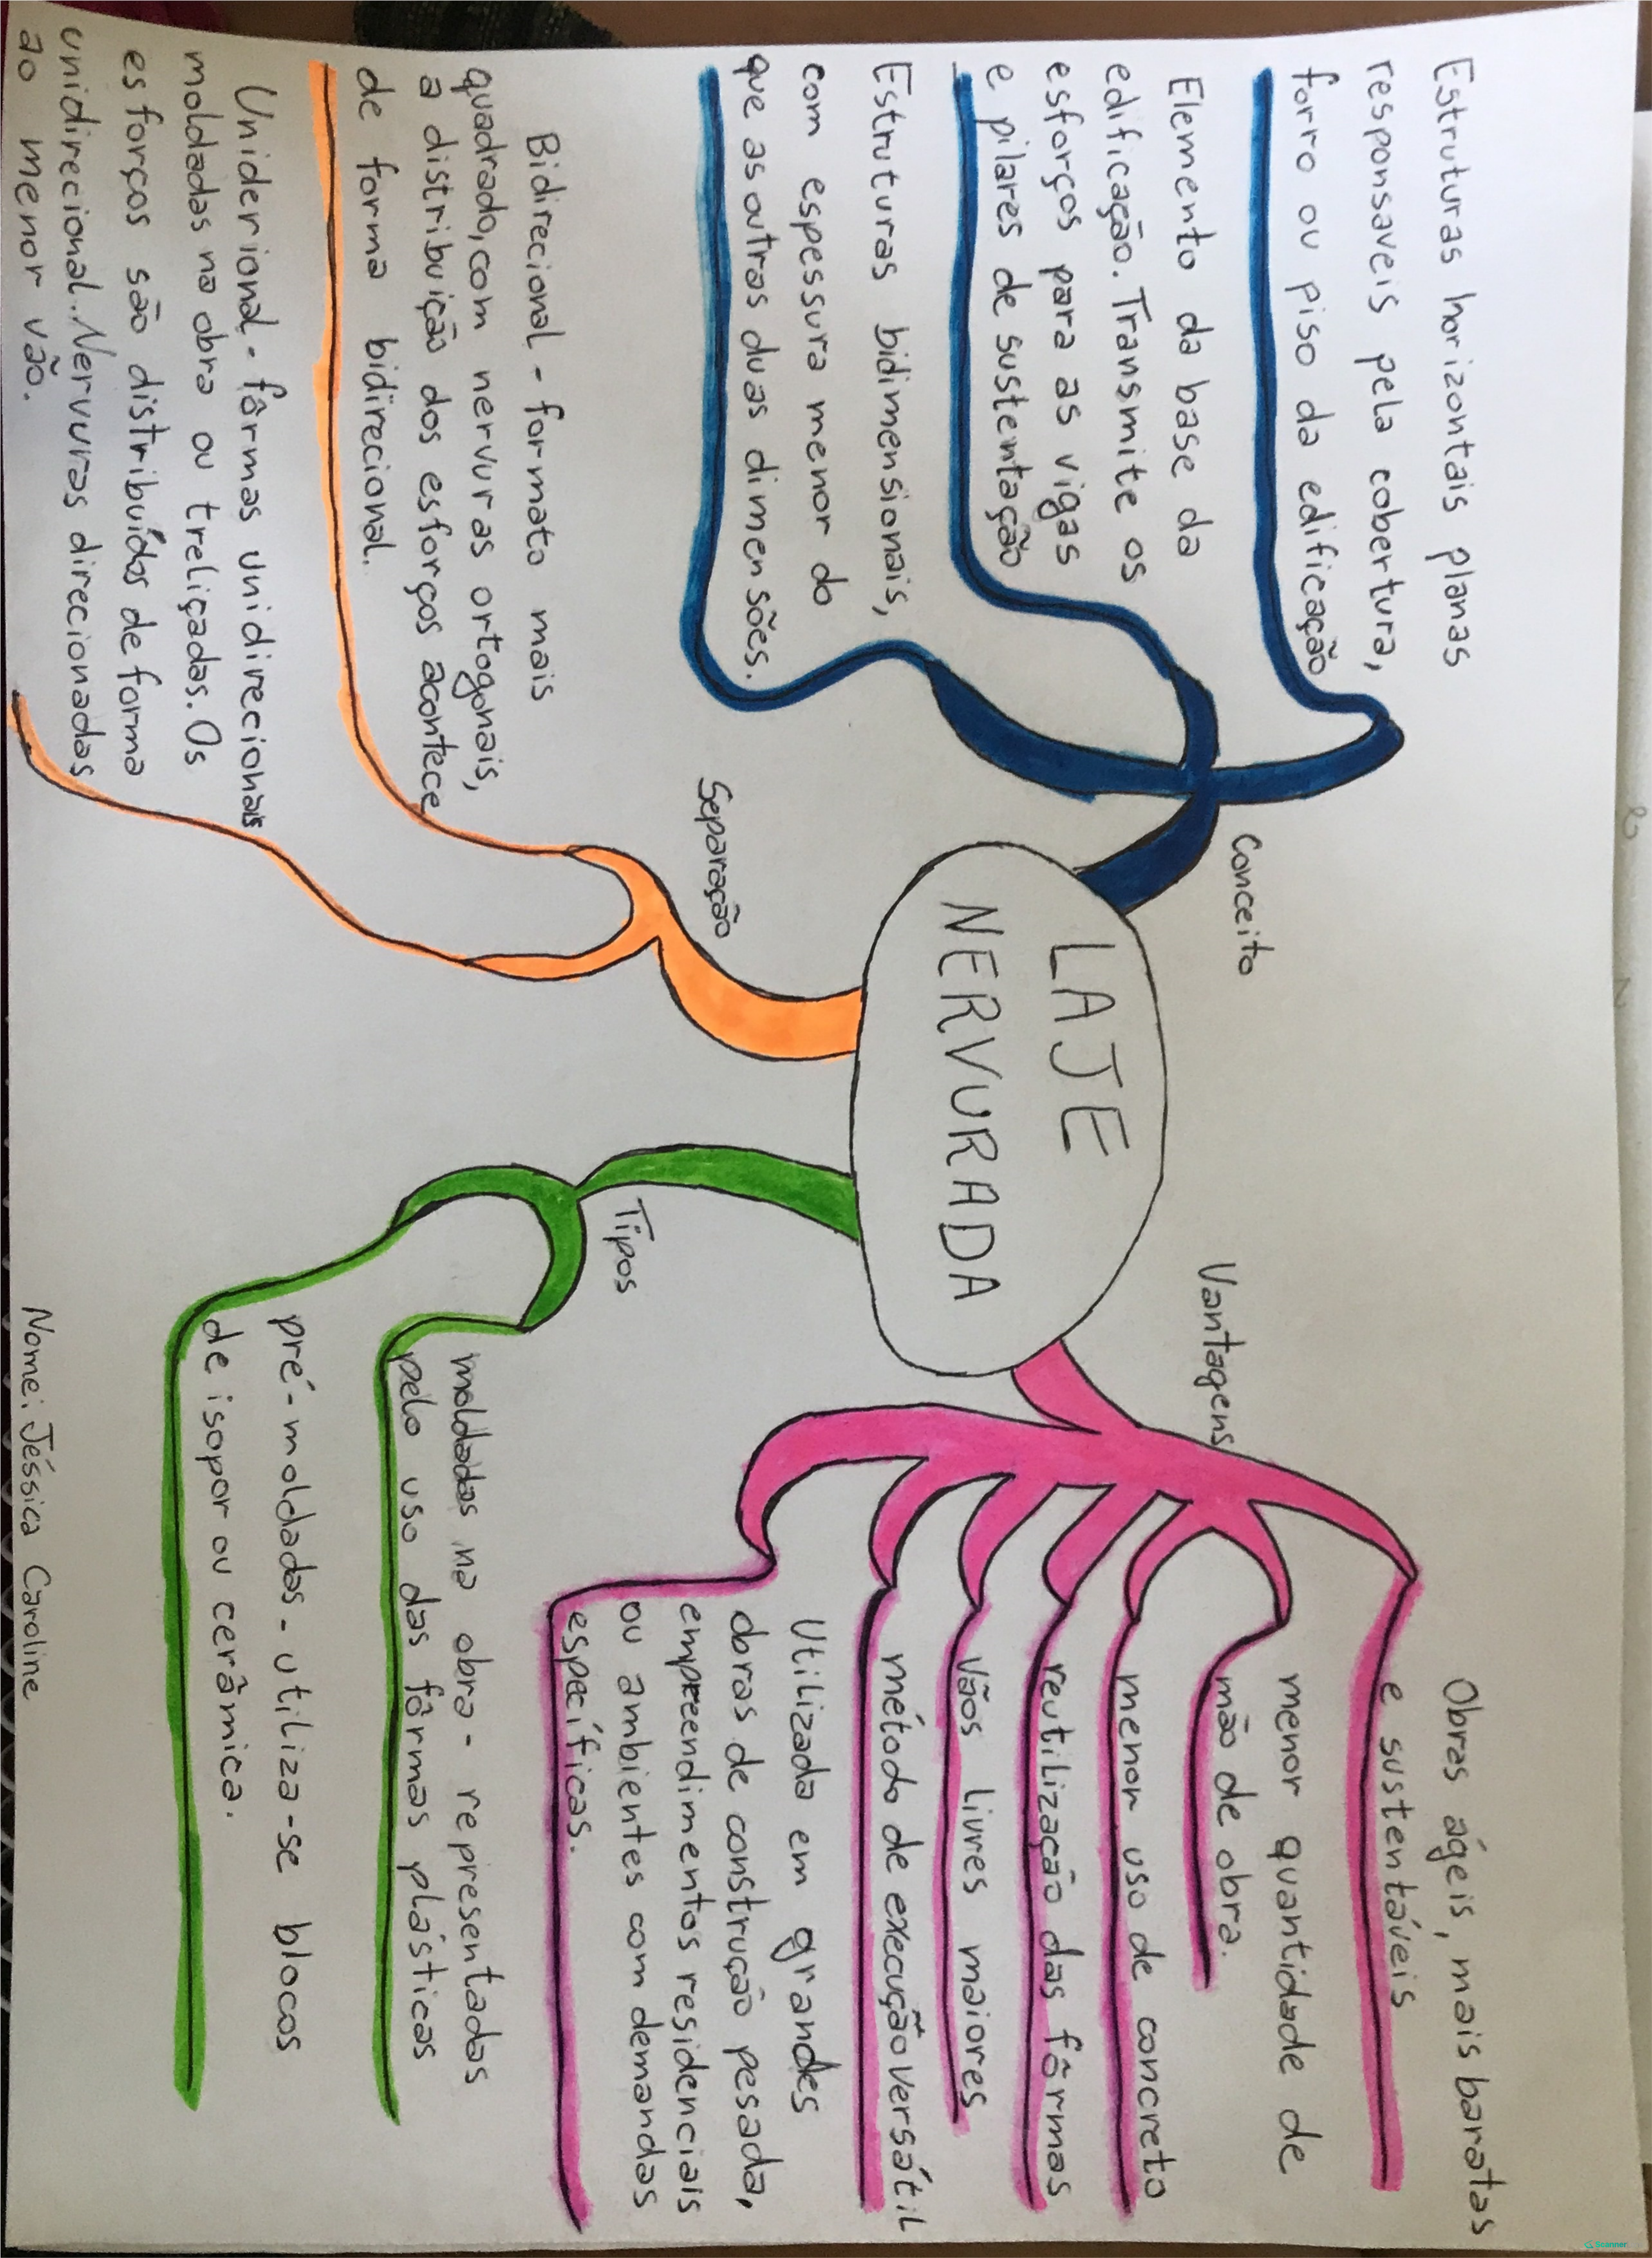 LAJE
NERVURADA
Conceito
Estruturas horizontais planas
responsaveis pela cobertura,
forro ou piso da edificação
Elemento da base da
edificação. Transmite os
esforços para as vigas
e pilares de sustentação
Estruturas bidimensionais,
com espessura menor do
que as outras duas dimensões.
Separação
Bidirecional - formato mais
quadrado, com nervuras ortogonais,
a distribuição dos esforços acontece
de forma bidirecional.
Uniderional - fôrmas unidirecionais
moldadas na obra ou treliçadas. Os
esforços são distribuídos de forma
unidirecional. Nervuras direcionadas
ao menor vão.
Vantagens
Obras ágeis, mais baratas
e sustentáveis
menor quantidade de
mão de obra.
menor uso de concreto
reutilização das fôrmas
Vãos livres maiores
método de execução versátil
Utilizada em grandes
obras de construção pesada,
empreendimentos residenciais
ou ambientes com demandas
específicas.
Tipos
moldadas na obra - representados
pelo uso das fôrmas plásticas
pré-moldadas - utiliza-se blocos
de isopor ou cerâmica.
Nome: Jéssica Caroline
Scanner